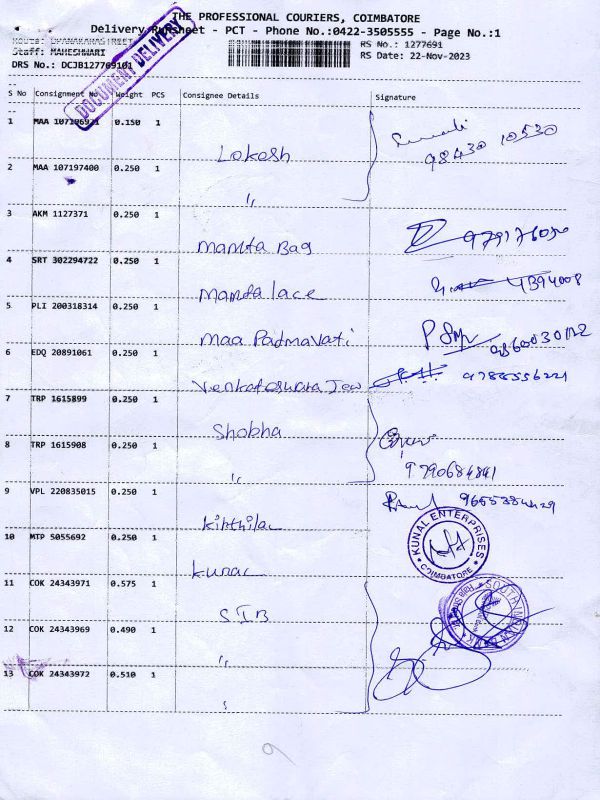 THE PROFESSIONAL COURIERS, COIMBATORE
Delivery Runsheet - PCT - Phone No.:0422-3505555 - Page No.:1
Route: DHANAKARASTREET
RS No.: 1277691
Staff: MAHESHWARI
RS Date: 22-Nov-2023
DRS No.: DCJB127769101
DOCUMENT DELIVERY
S No Consignment No Weight PCS Consignee Details Signature
1 MAA 107196921 0.150 1 Lokesh
98430 10530
2 MAA 107197400 0.250 1 "
3 AKM 1127371 0.250 1 Mamta Bag
4 SRT 302294722 0.250 1 Mamta lace
5 PLI 200318314 0.250 1 Maa Padmavati
6 EDQ 20891061 0.250 1 Venkateswara Jew
9788556221
7 TRP 1615899 0.250 1 Shobha
8 TRP 1615908 0.250 1 "
9790684841
9 VPL 220835015 0.250 1
10 MTP 5055692 0.250 1 Kunal
KUNAL ENTERPRISES
COIMBATORE
11 COK 24343971 0.575 1 SIB
12 COK 24343969 0.490 1 "
13 COK 24343972 0.510 1 "
9